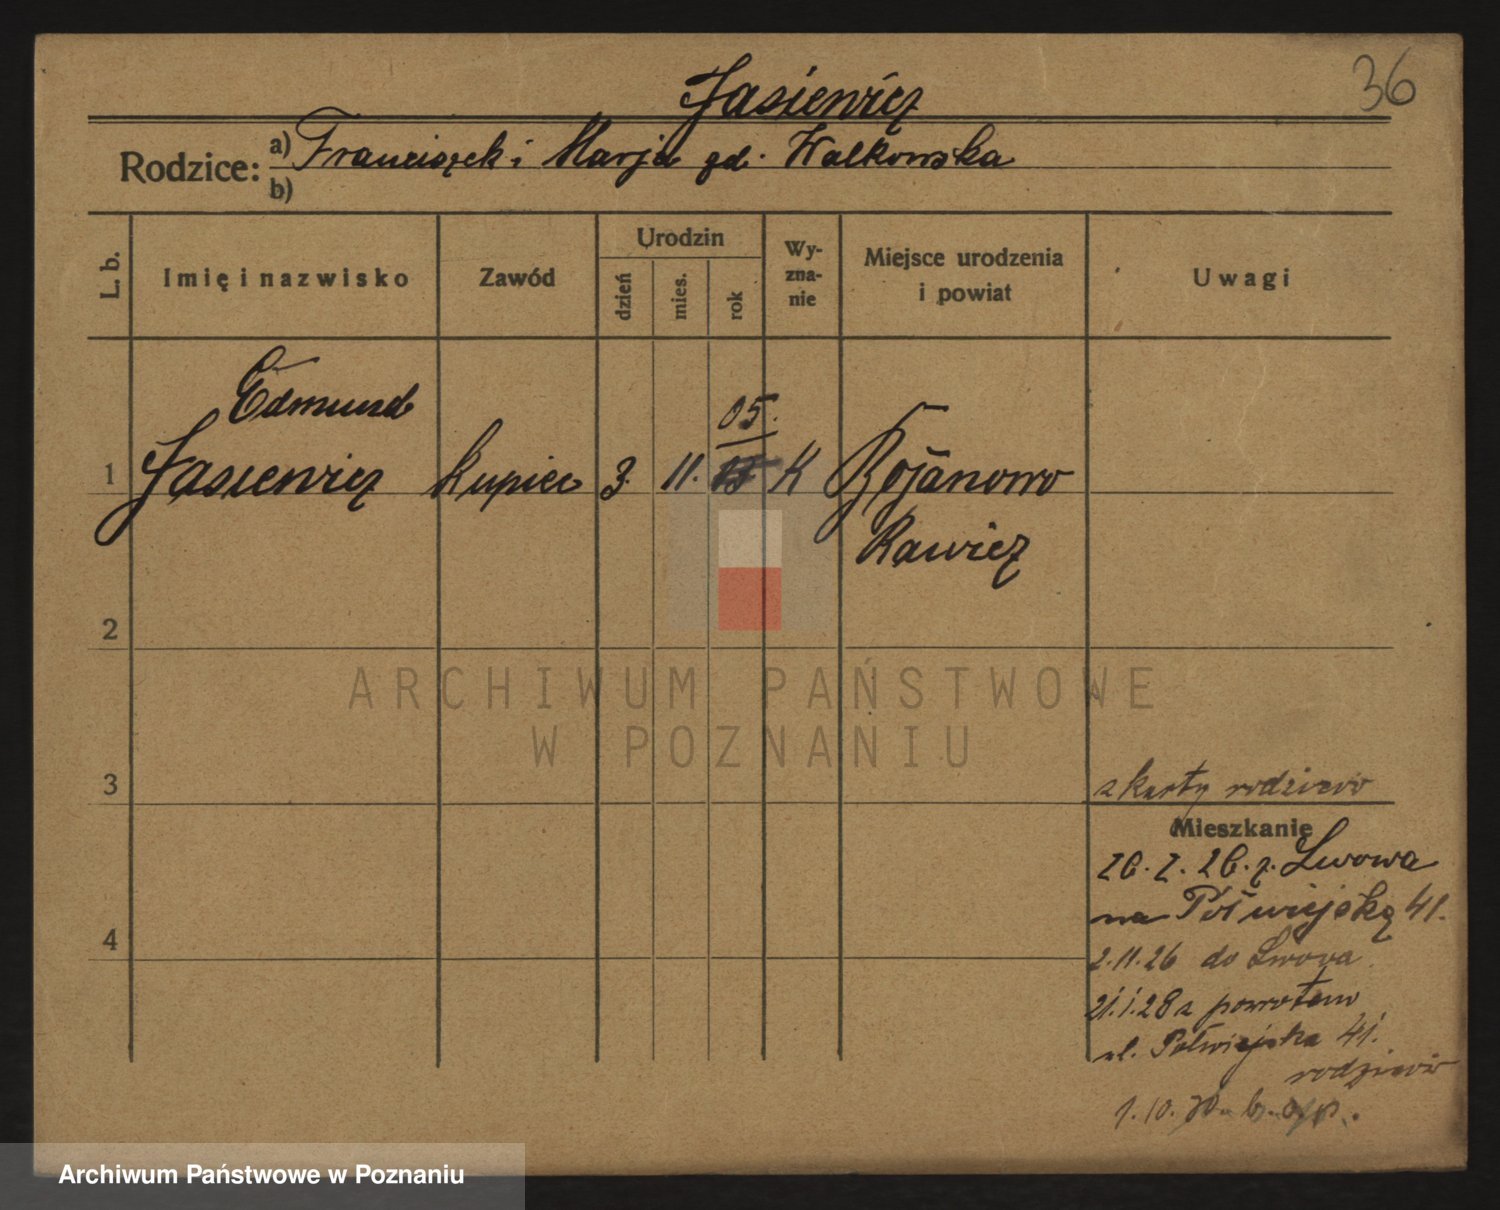 36
Jasiewicz
Rodzice: a) Franciszek i Marja zd. Walkowska
b)
L. b.
Imię i nazwisko
Zawód
Urodzin
dzień
mies.
rok
Wy-
zna-
nie
Miejsce urodzenia
i powiat
Uwagi
Edmund
05.
1 Jasiewicz kupiec 3. 11. K Bojanowo
Rawicz
2
ARCHIWUM PAŃSTWOWE
W POZNANIU
3
z karty rodziców
Mieszkanie
z Lwowa
na Półwiejską 41.
4
2.11.26 do Lwowa
21.1.28 z powrotem
ul. Półwiejska 41.
rodziców
1.10.
Archiwum Państwowe w Poznaniu